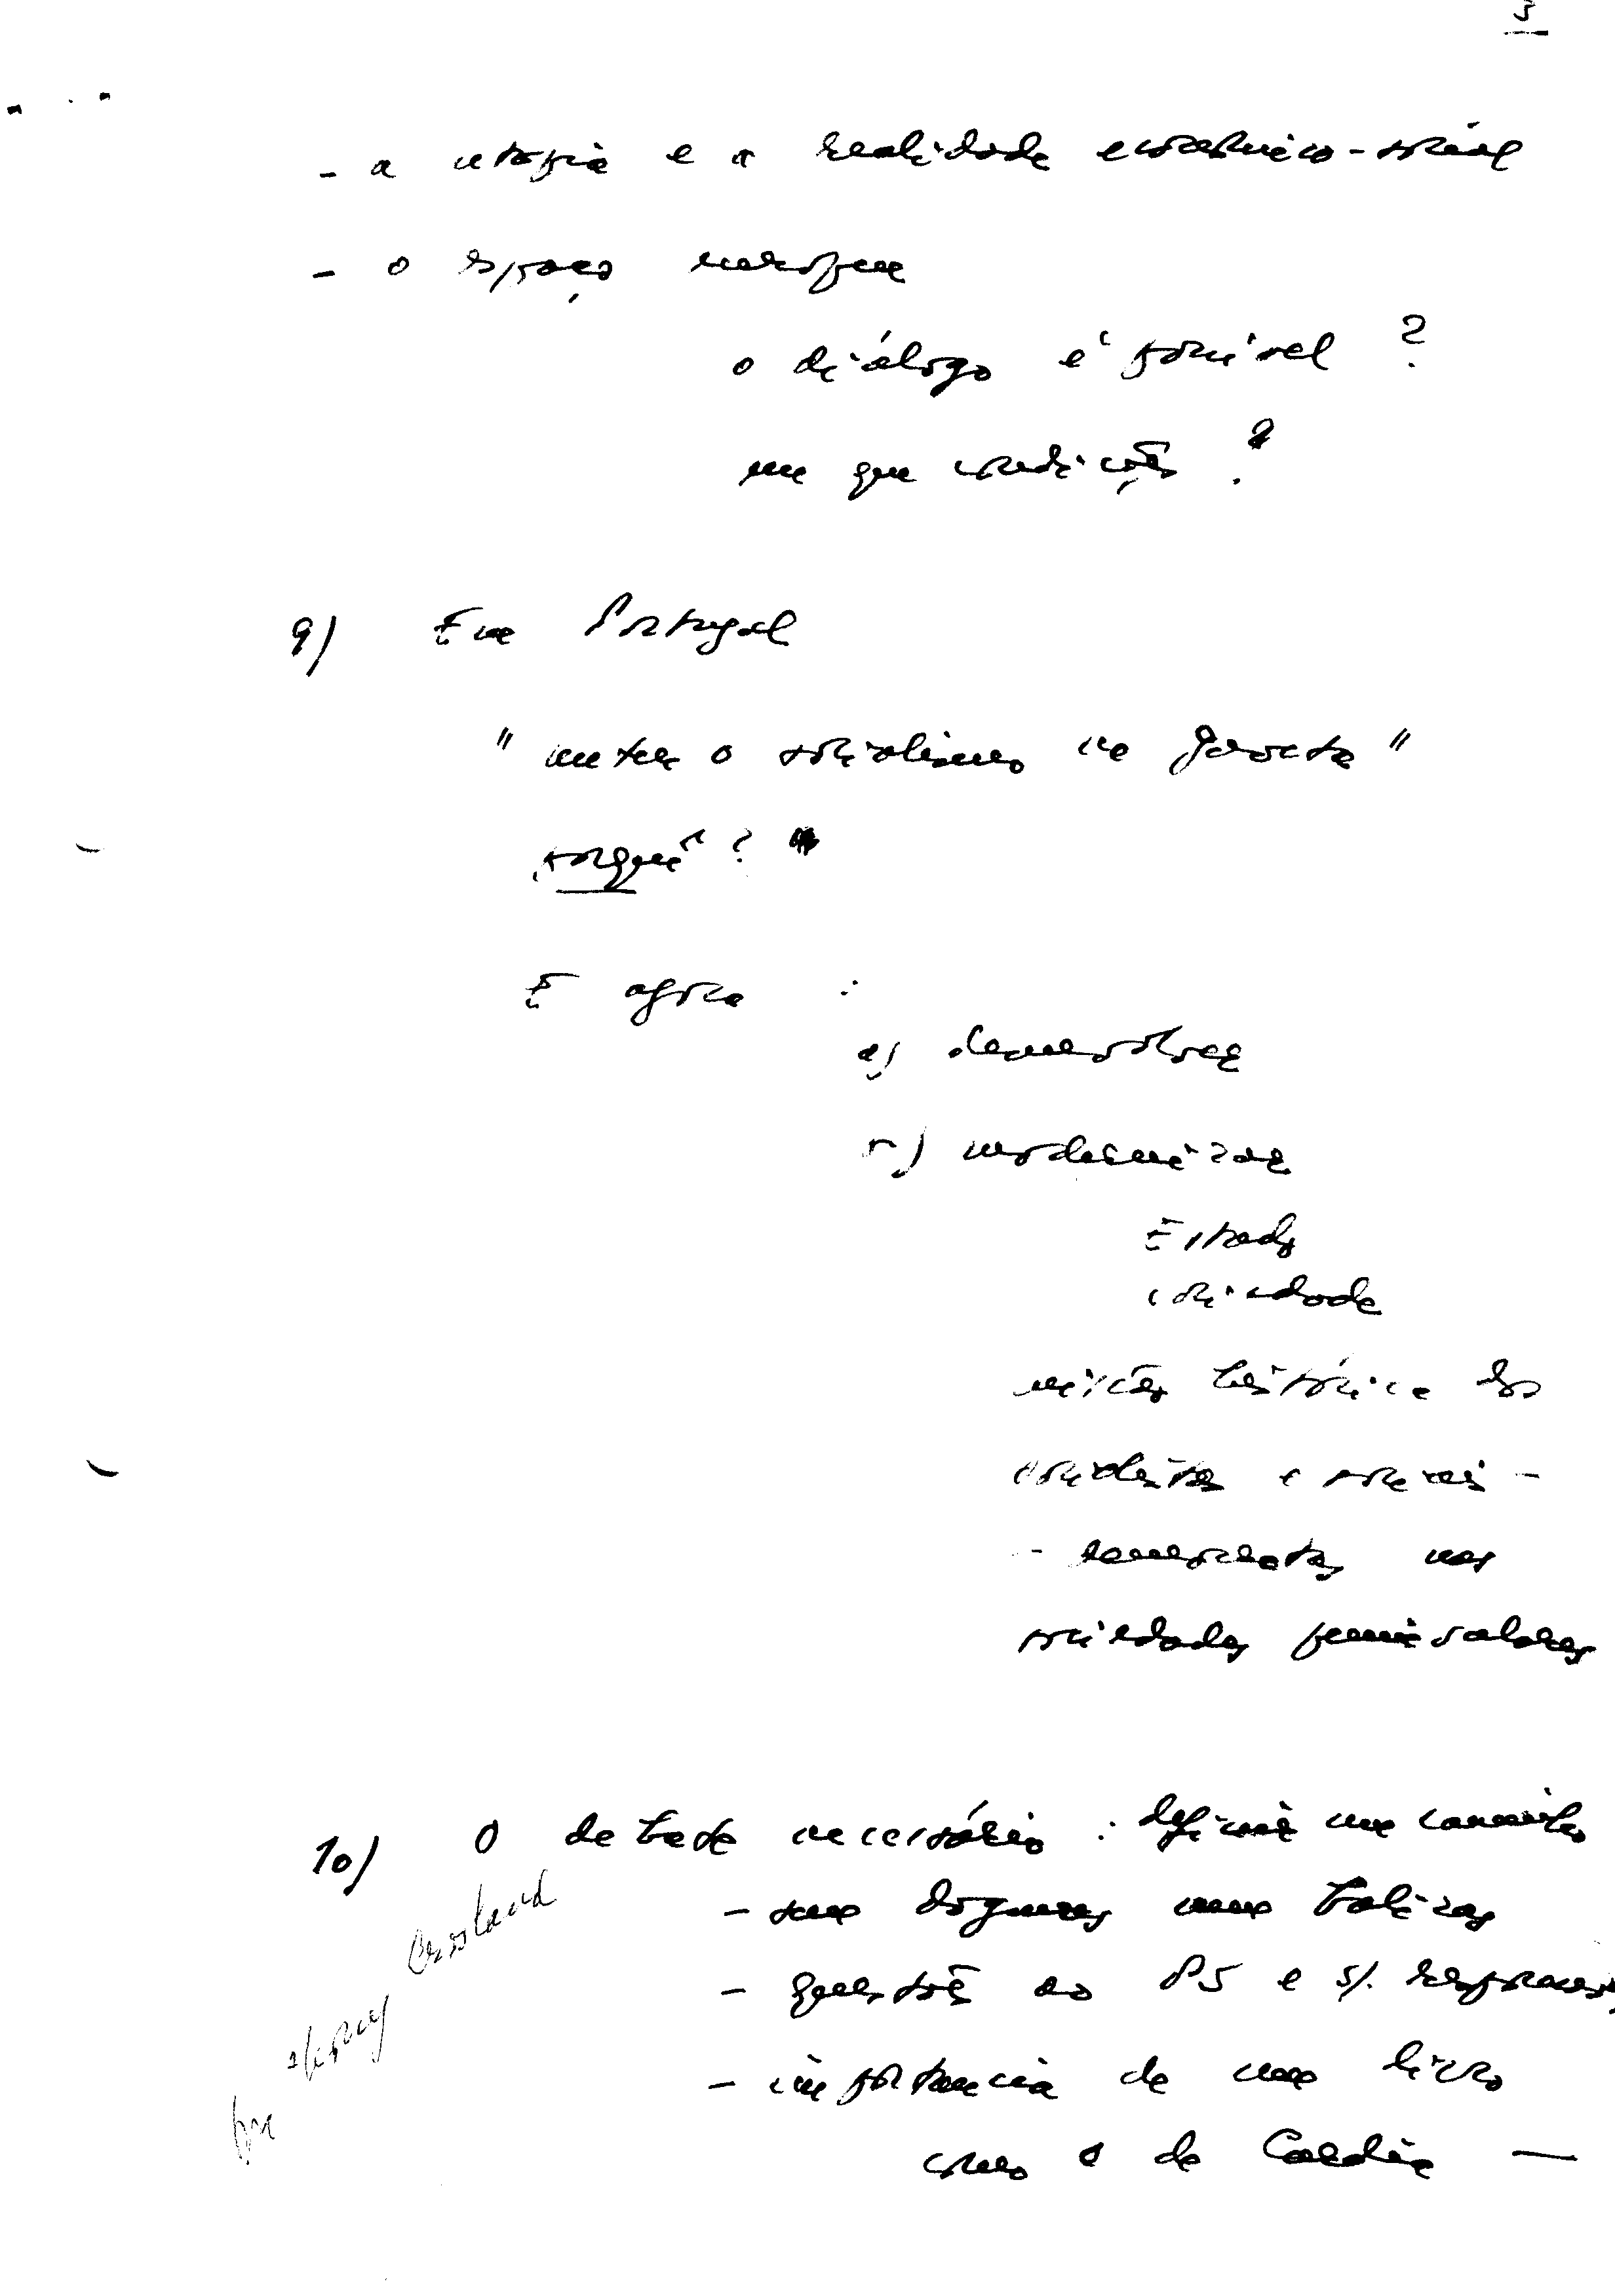 3
- a utopia e a realidade económico-social
- o espaço europeu
o diálogo é possível ?
em que condições ?
9) Em Portugal
" meter o socialismo na gaveta "
porquê ?
E agora :
a) desenvolver
b) modernizar
Estado
sociedade
missão histórica dos
socialistas e sociais -
- democratas nas
sociedades
10) O debate necessário : definir um caminho
- sem dogmas nem balizas
- questões ao PS e s/.
- importância de um livro
como o de Cardia —
Crosland